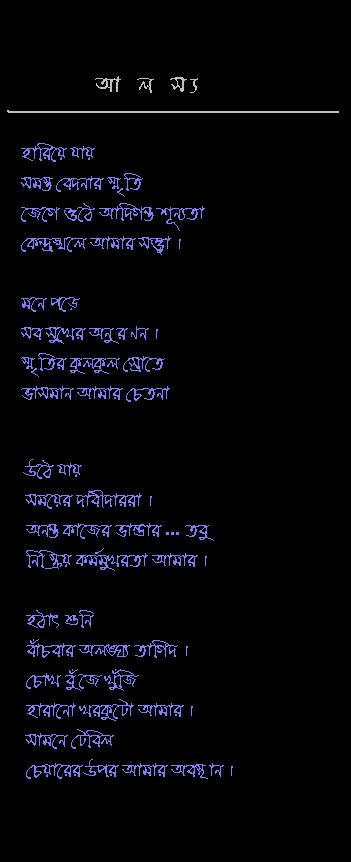 আ ল স্য
হারিয়ে যায়
সমস্ত বেদনার স্মৃতি
জেগে ওঠে আদিগন্ত শূন্যতা
কেন্দ্রস্থলে আমার সত্ত্বা ।
মনে পড়ে
সব সুখের অনুরণন ।
স্মৃতির কুলকুল স্রোতে
ভাসমান আমার চেতনা
উঠে যায়
সময়ের দাবীদাররা ।
অনন্ত কাজের ভান্ডার ... তবু
নিষ্ক্রিয় কর্মমুখরতা আমার ।
হঠাৎ শুনি
বাঁচবার অলঙ্ঘ্য তাগিদ ।
চোখ বুঁজে খুঁজি
হারানো খরকুটো আমার ।
সামনে টেবিল
চেয়ারের উপর আমার অবস্থান ।